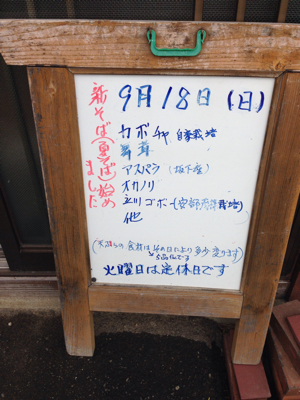 新そば(夏そば)始めました
9月18日(日)
カボチャ 自家栽培
舞茸
アスパラ(坂下産)
オカノリ
立川ゴボー(安部
栽培)
他
(天ぷらの食材はその日により多少変ります)
火曜日は定休日です